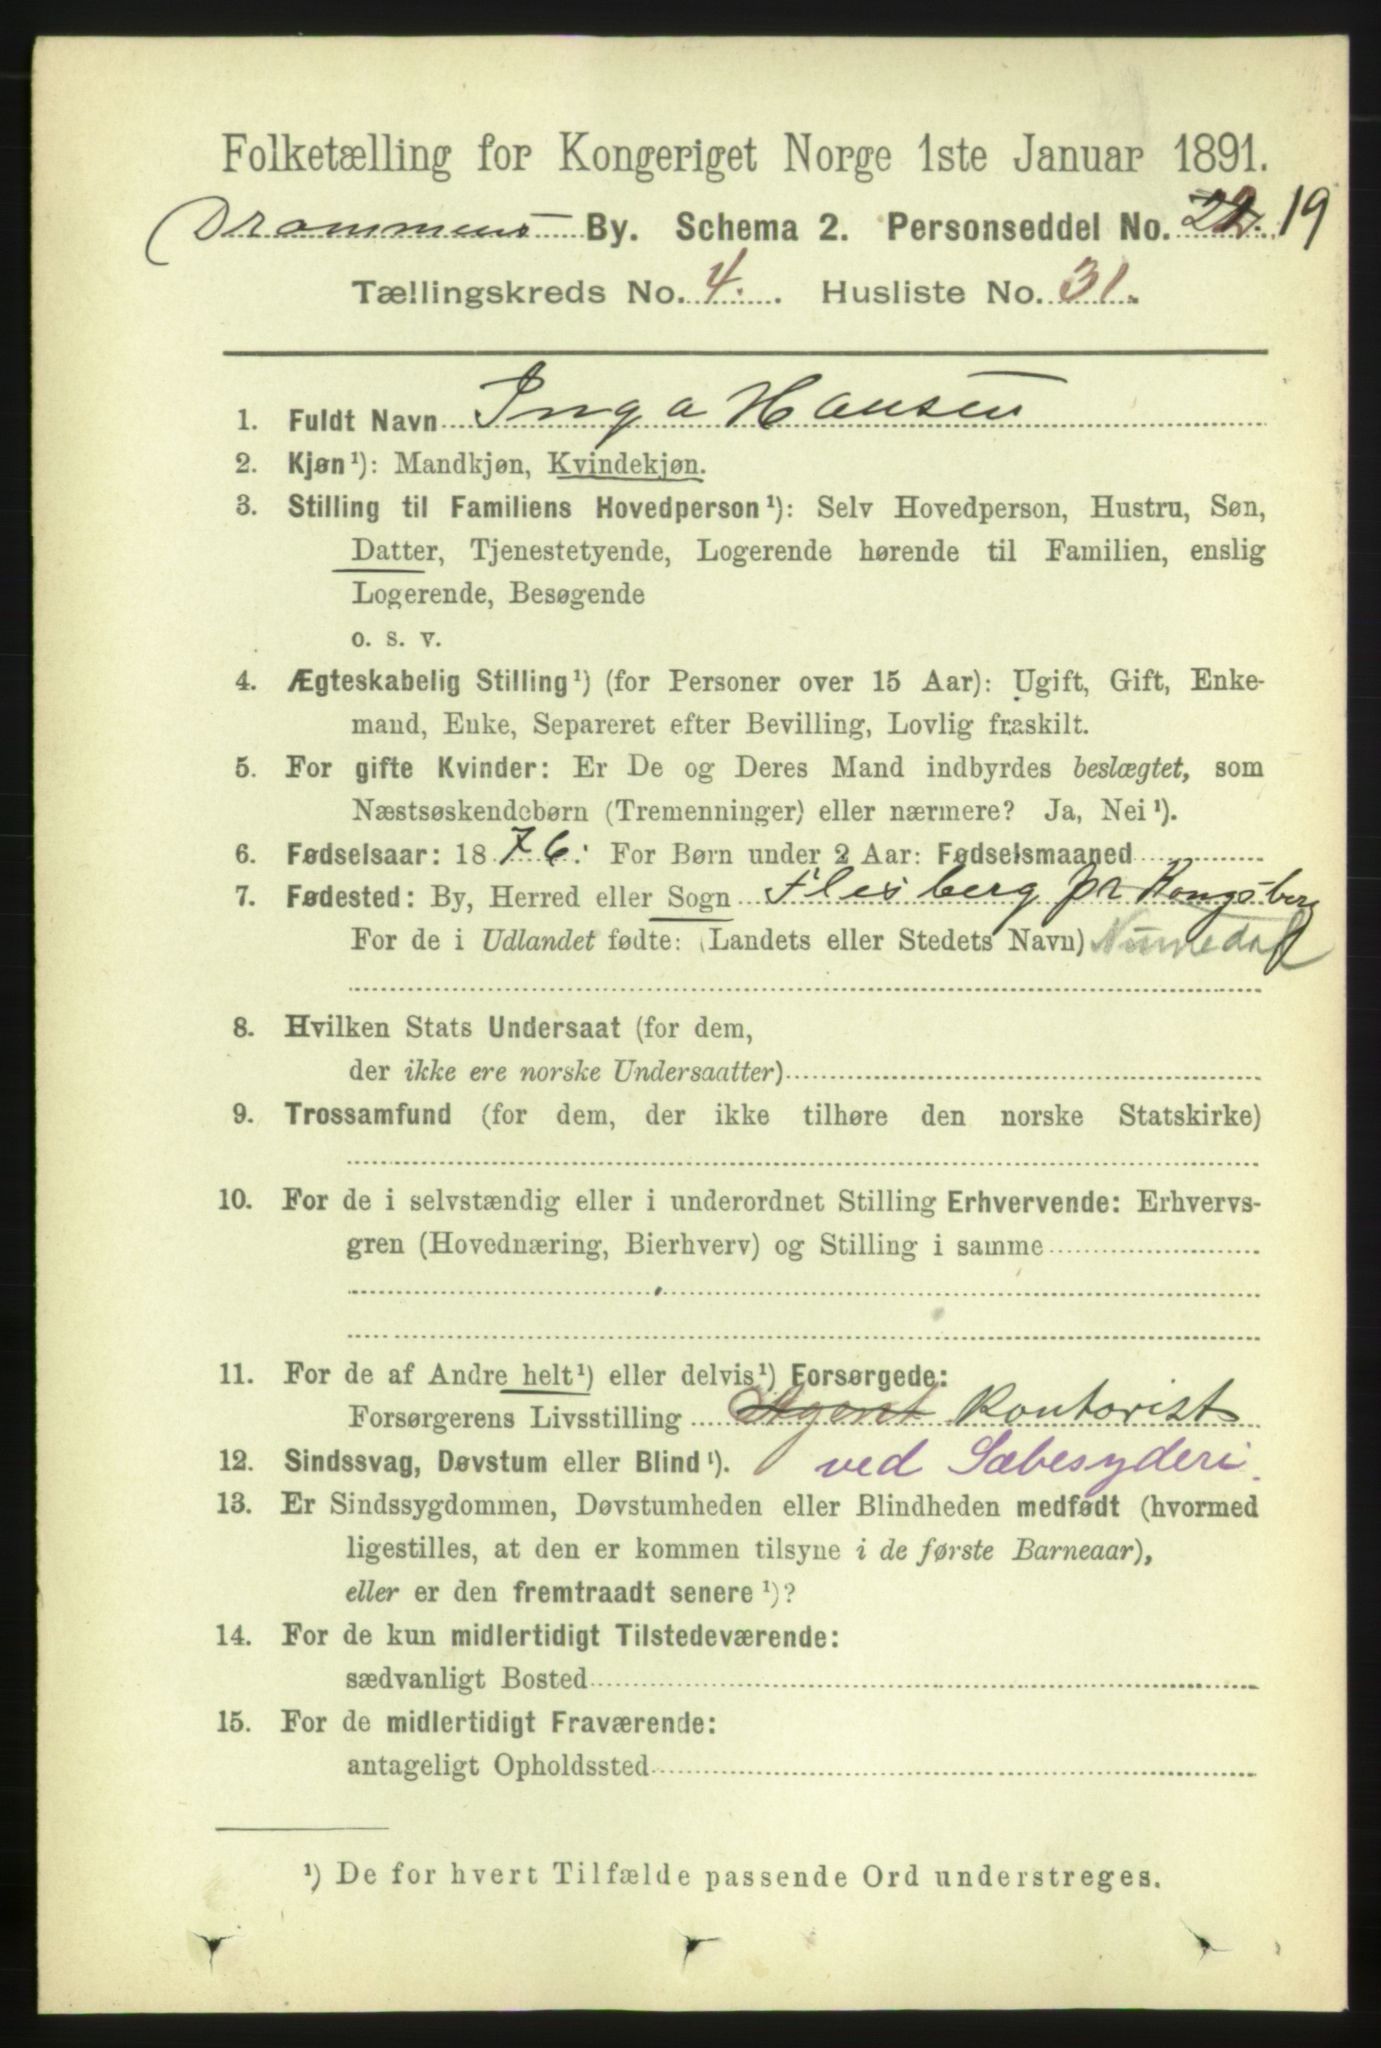 Folketælling for Kongeriget Norge 1ste Januar 1891.
Drammens By. Schema 2. Personseddel No. 19
Tællingskreds No. 4. Husliste No. 31.
1. Fuldt Navn Inga Hansen
2. Kjøn¹): Mandkjøn, Kvindekjøn.
3. Stilling til Familiens Hovedperson¹): Selv Hovedperson, Hustru, Søn,
Datter, Tjenestetyende, Logerende hørende til Familien, enslig
Logerende, Besøgende
o. s. v.
4. Ægteskabelig Stilling¹) (for Personer over 15 Aar): Ugift, Gift, Enke-
mand, Enke, Separeret efter Bevilling, Lovlig fraskilt.
5. For gifte Kvinder: Er De og Deres Mand indbyrdes beslægtet, som
Næstsøskendebørn (Tremenninger) eller nærmere? Ja, Nei¹).
6. Fødselsaar: 1876. For Børn under 2 Aar: Fødselsmaaned
7. Fødested: By, Herred eller Sogn Flesberg pr Kongsberg
For de i Udlandet fødte: (Landets eller Stedets Navn) Numedal
8. Hvilken Stats Undersaat (for dem,
der ikke ere norske Undersaatter)
9. Trossamfund (for dem, der ikke tilhøre den norske Statskirke)
10. For de i selvstændig eller i underordnet Stilling Erhvervende: Erhvervs-
gren (Hovednæring, Bierhverv) og Stilling i samme
11. For de af Andre helt¹) eller delvis¹) Forsørgede:
Forsørgerens Livsstilling Agent Kontorist
12. Sindssvag, Døvstum eller Blind¹). ved Sæbesyderi.
13. Er Sindssygdommen, Døvstumheden eller Blindheden medfødt (hvormed
ligestilles, at den er kommen tilsyne i de første Barneaar),
eller er den fremtraadt senere¹)?
14. For de kun midlertidigt Tilstedeværende:
sædvanligt Bosted
15. For de midlertidigt Fraværende:
antageligt Opholdssted
¹) De for hvert Tilfælde passende Ord understreges.